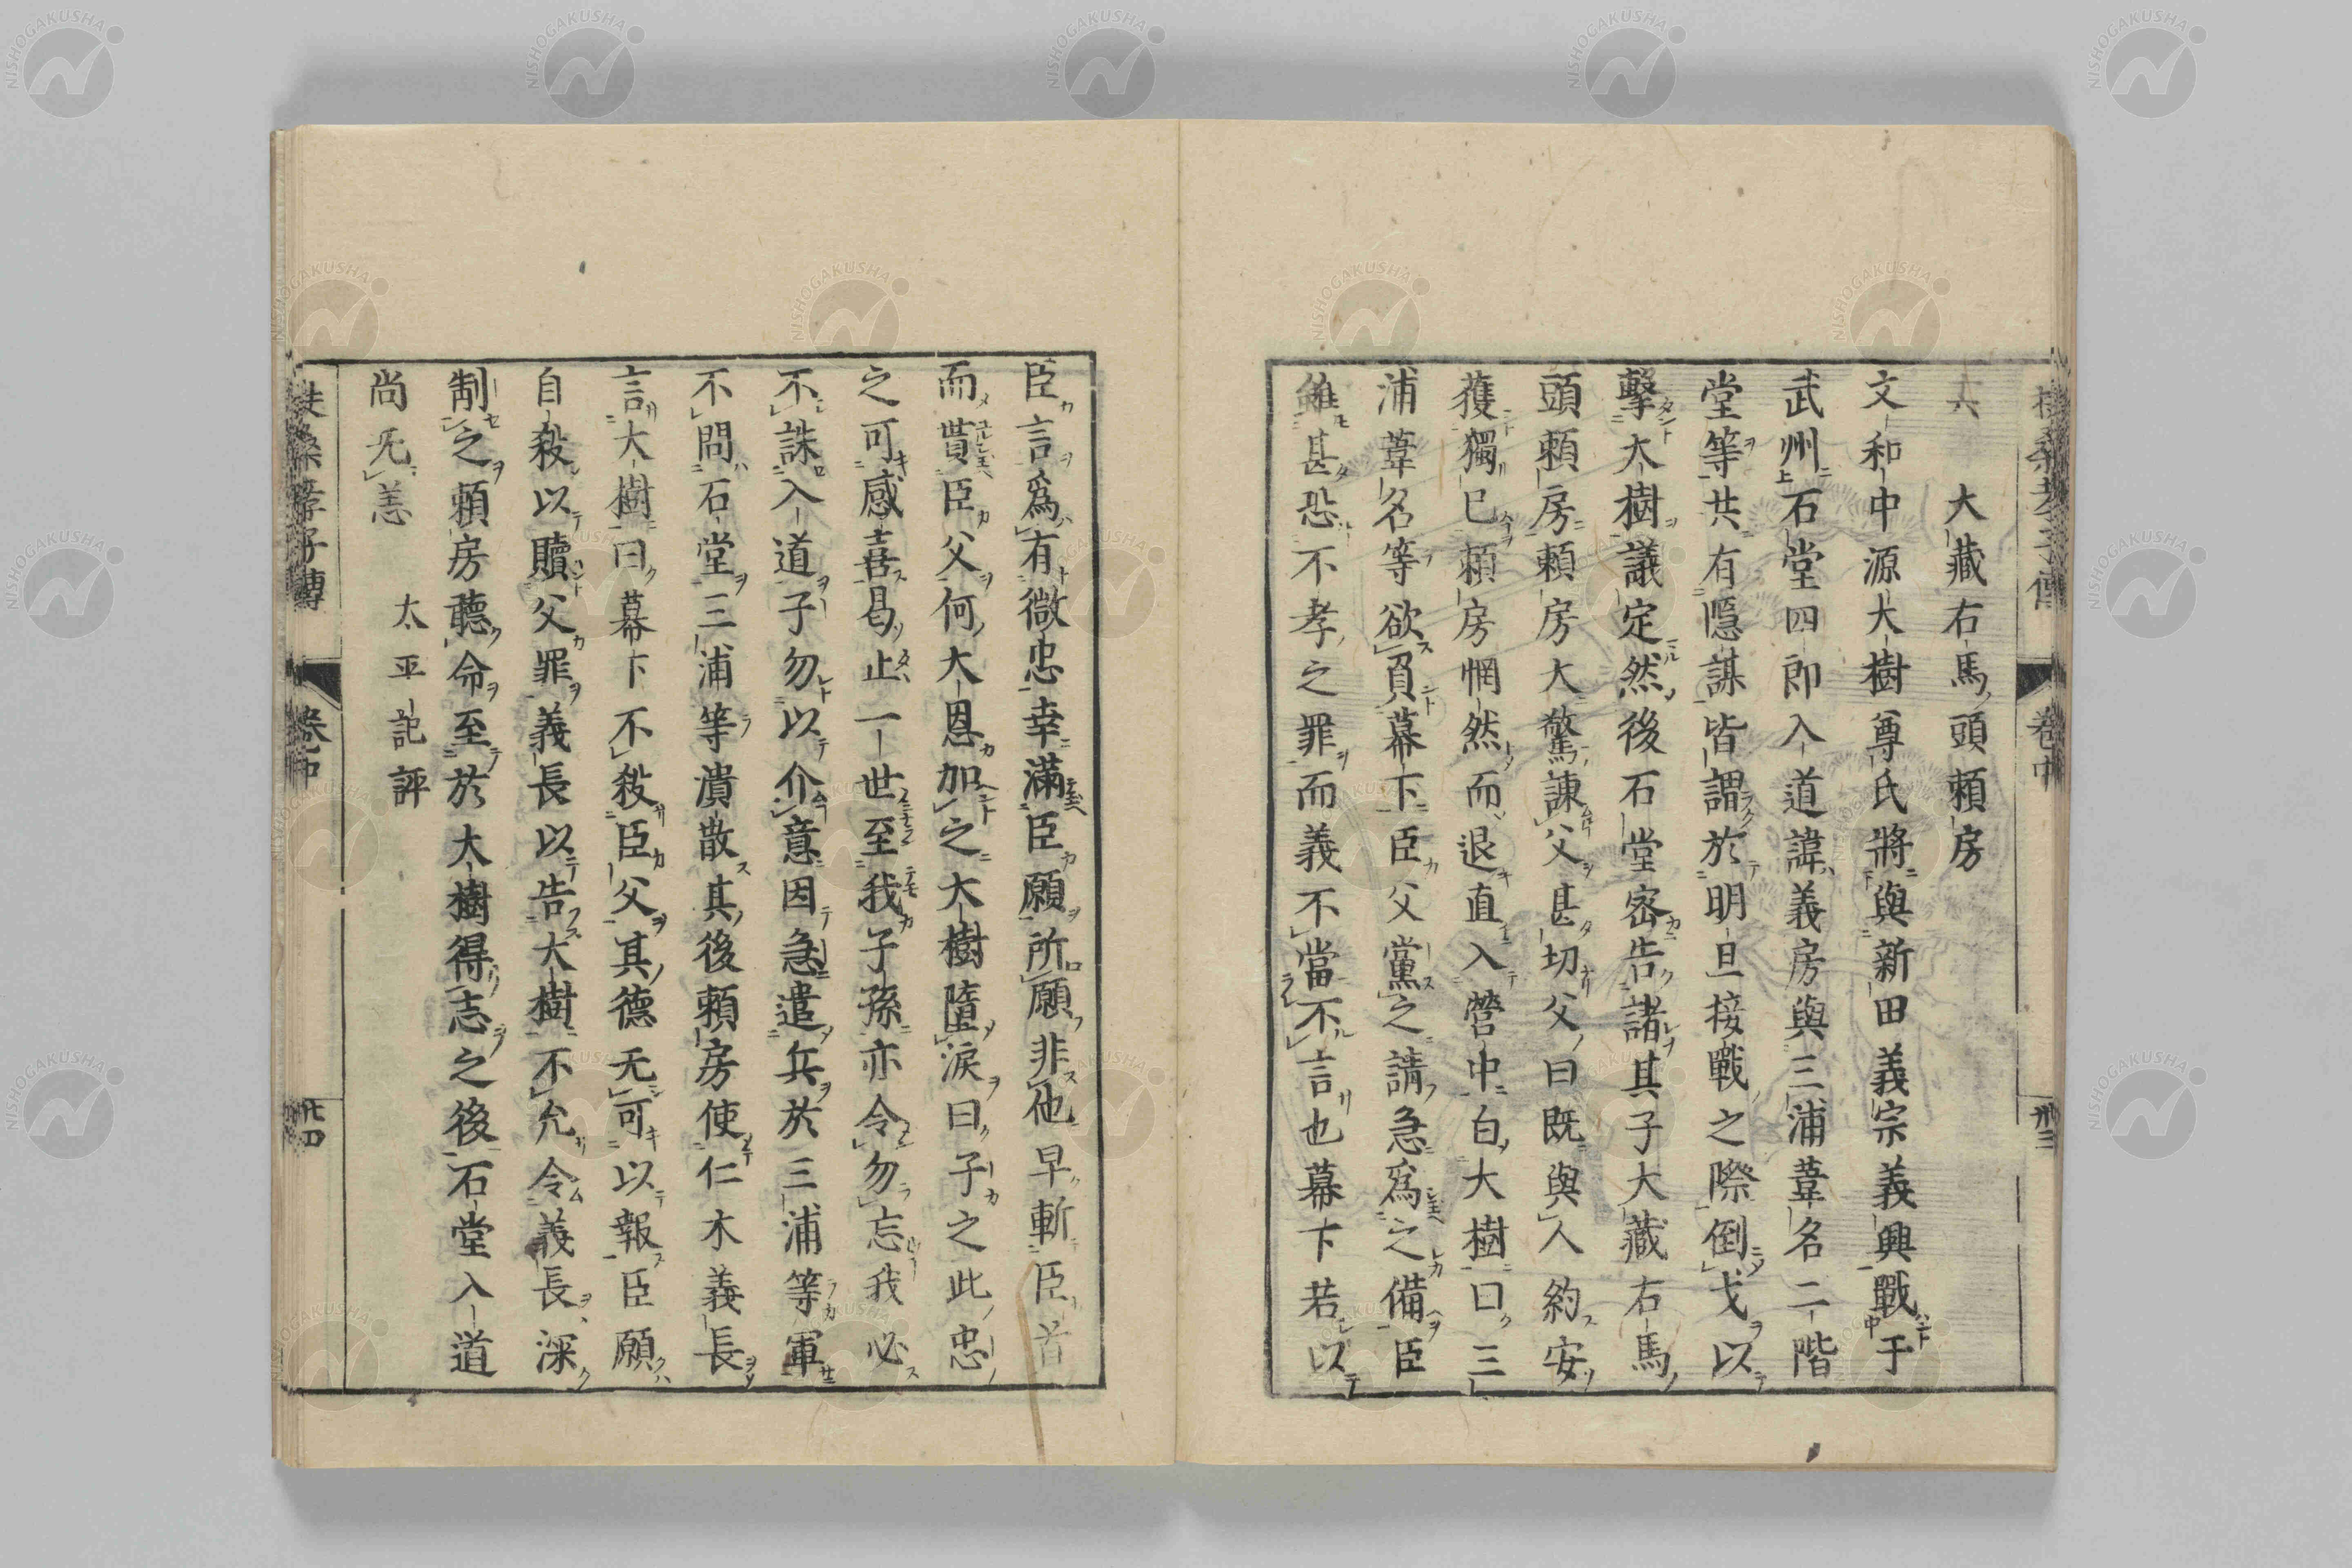 六 大藏右馬頭頼房
文和中源大樹尊氏將與新田義宗義興戰于
武州石堂四郎入道諱義房與三浦葦名二階
堂等共有隱謀皆謂於明旦接戰之際倒戈以
擊大樹議定然後石堂密告諸其子大藏右馬
頭頼房頼房大驚諫父甚切父曰既與人約安
獲獨已頼房惘然而退直入營中白大樹曰三
浦葦名等欲負幕下臣父黨之請急爲之備臣
雖甚恐不孝之罪而義不當不言也幕下若以
臣言爲有微忠幸滿臣願所願非他早斬臣首
而貰臣父何大恩加之大樹墮淚曰子之此忠
之可感喜曷止一世至我子孫亦令勿忘我必
不誅入道子勿以介意因急遣兵於三浦等軍
不問石堂三浦等潰散其後頼房使仁木義長
言大樹曰幕下不殺臣父其德无可以報臣願
自殺以贖父罪義長以告大樹不允令義長深
制之頼房聽命至於大樹得志之後石堂入道
尚无恙 太平記評
扶桑孝子傳 卷中 卅三
扶桑孝子傳 卷中 卅四
NISHOGAKUSHA